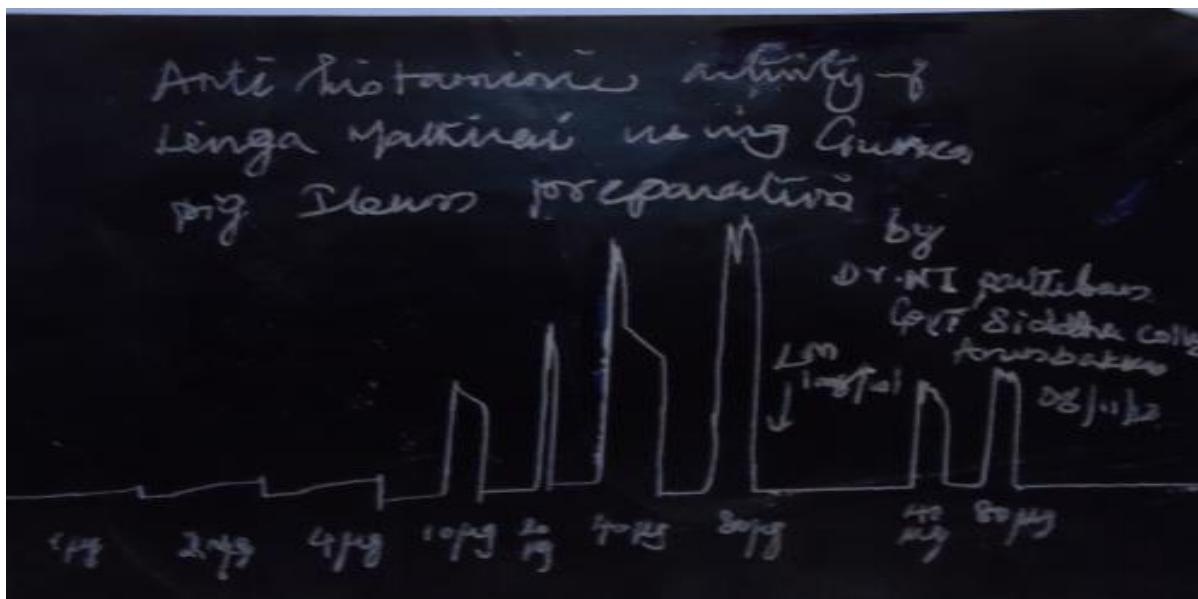 Anti histaminic activity of
Linga Mathirai using Guinea
pig Ileum preparation
by
Dr. NJ
Govt Siddha College
Arumbakkam
LM
1µg 2µg 4µg 10µg 20µg 40µg 80µg 40µg 80µg